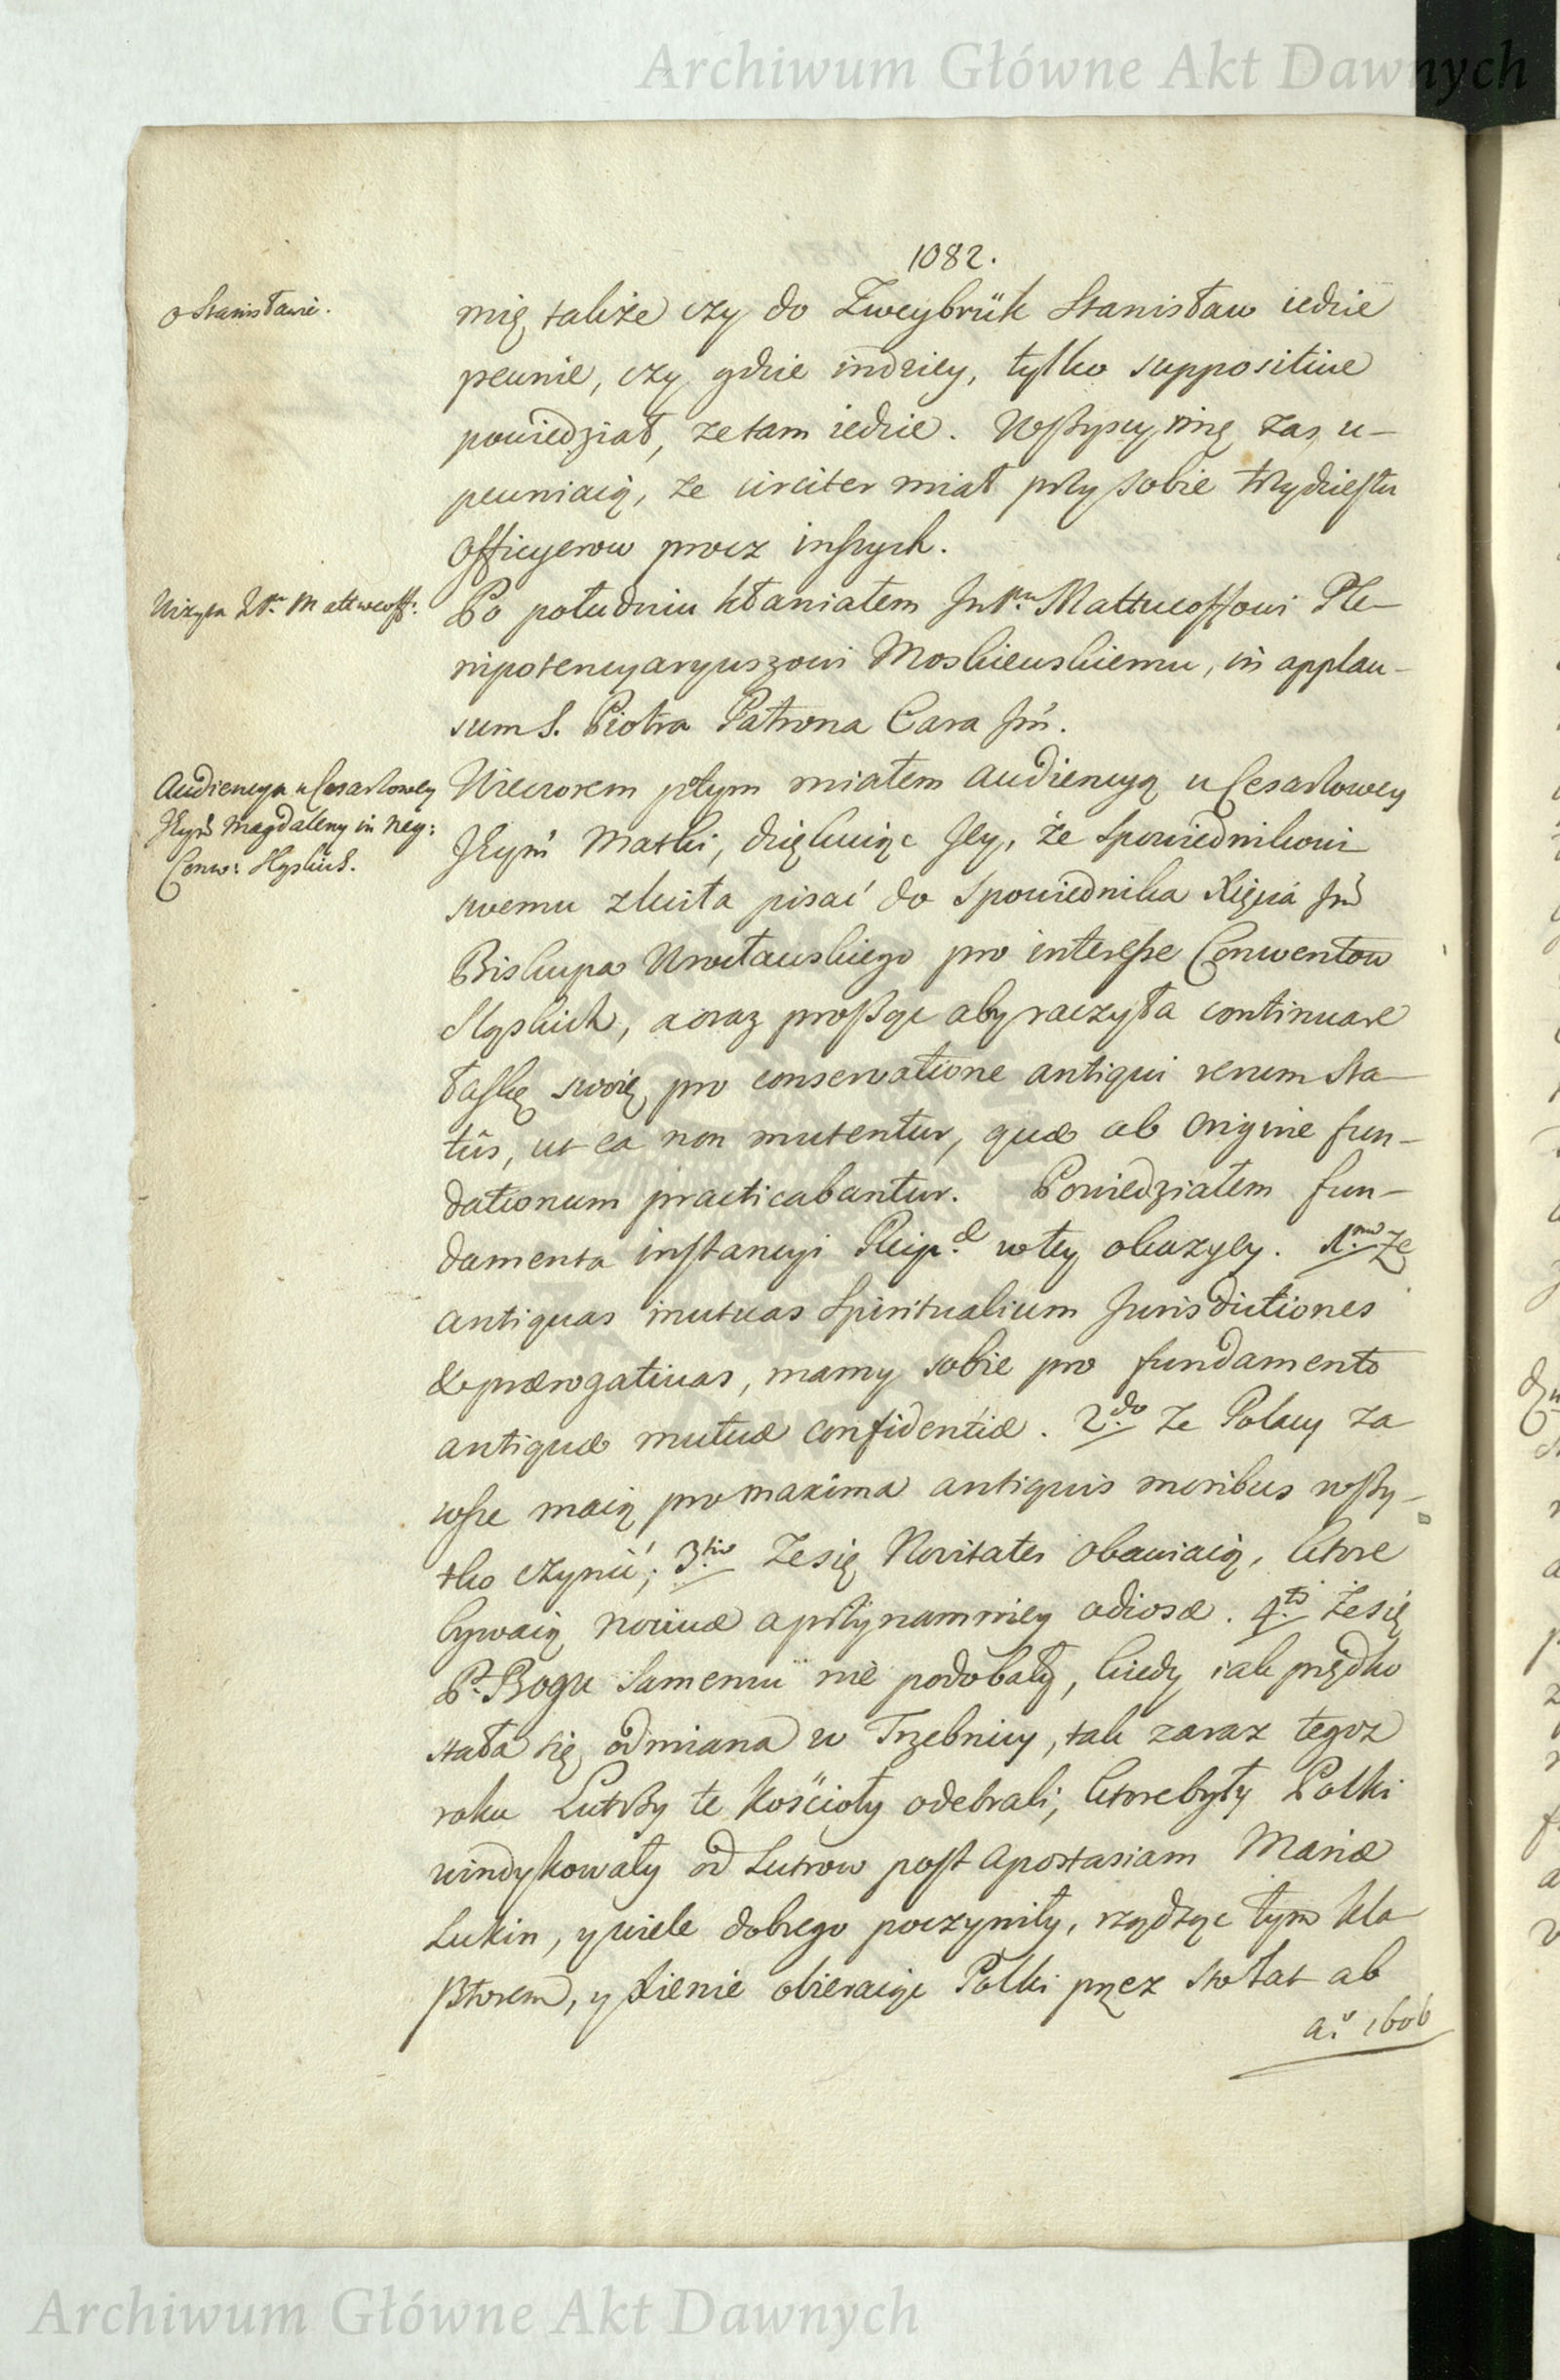 Archiwum Główne Akt Dawnych
1082.
o Stanisławie.
mię takze czy do Zweybrük Stanisław iedzie
pewnie, czy gdzie indziey, tylko suppositive
powiedział, ze tam iedzie. Wszyscy mię zas u-
pewniaią, ze circiter miał przy sobie trzydziestu
Officyerow procz inszych.
Wizyta Matweoff:
Po południu kłaniałem Mattueoffowi Ple-
nipotencyaryuszowi Moskiewskiemu, in applau-
sum S. Piotra Patrona Cara Jm̃.
Audiencya u Cesarzowey
Magdaleny in neg:
Conw: Sląskich.
Wieczorem miałem audiencyą u Cesarzowey
Matki, dziękuiąc Jey, że Spowiednikowi
swemu zleciła pisać do Spowiednika Xięcia Jm̃
Biskupa Wrocławskiego pro interesse Conwentow
Sląskich, a oraz prosząc aby raczyła continuare
łaskę swoię pro conservatione antiqui rerum sta-
tûs, ut ea non mutentur, quæ ab origine fun-
dationum practicabantur. Powiedziałem fun-
damenta instancyi Reip. w tey okazyey. 1.mo Ze
antiquas mutuas Spiritualium Jurisdictiones
& prærogativas, mamy sobie pro fundamento
antiquæ mutuæ confidentiæ. 2.do Ze Polacy za
wsze maią pro maxima antiquis moribus wszy-
tko czynić; 3.tio Ze się Novitates obawiaią, ktore
bywaią nocivæ a przynamniey odiosæ. 4.to Ze się
P. Bogu Samemu nie podobały, kiedy iak prędko
stała się odmiana w Trzebnicy, tak zaraz tegoz
roku Lutrzy te Kościoły odebrali, ktore były Polki
windykowały od Lutrow post apostasiam Mariæ
Lukin, y wiele dobrego poczyniły, rządząc tym kla-
sztorem, y Xienie obieraiąc Polki przez sto lat ab
a.o 1606
Archiwum Główne Akt Dawnych